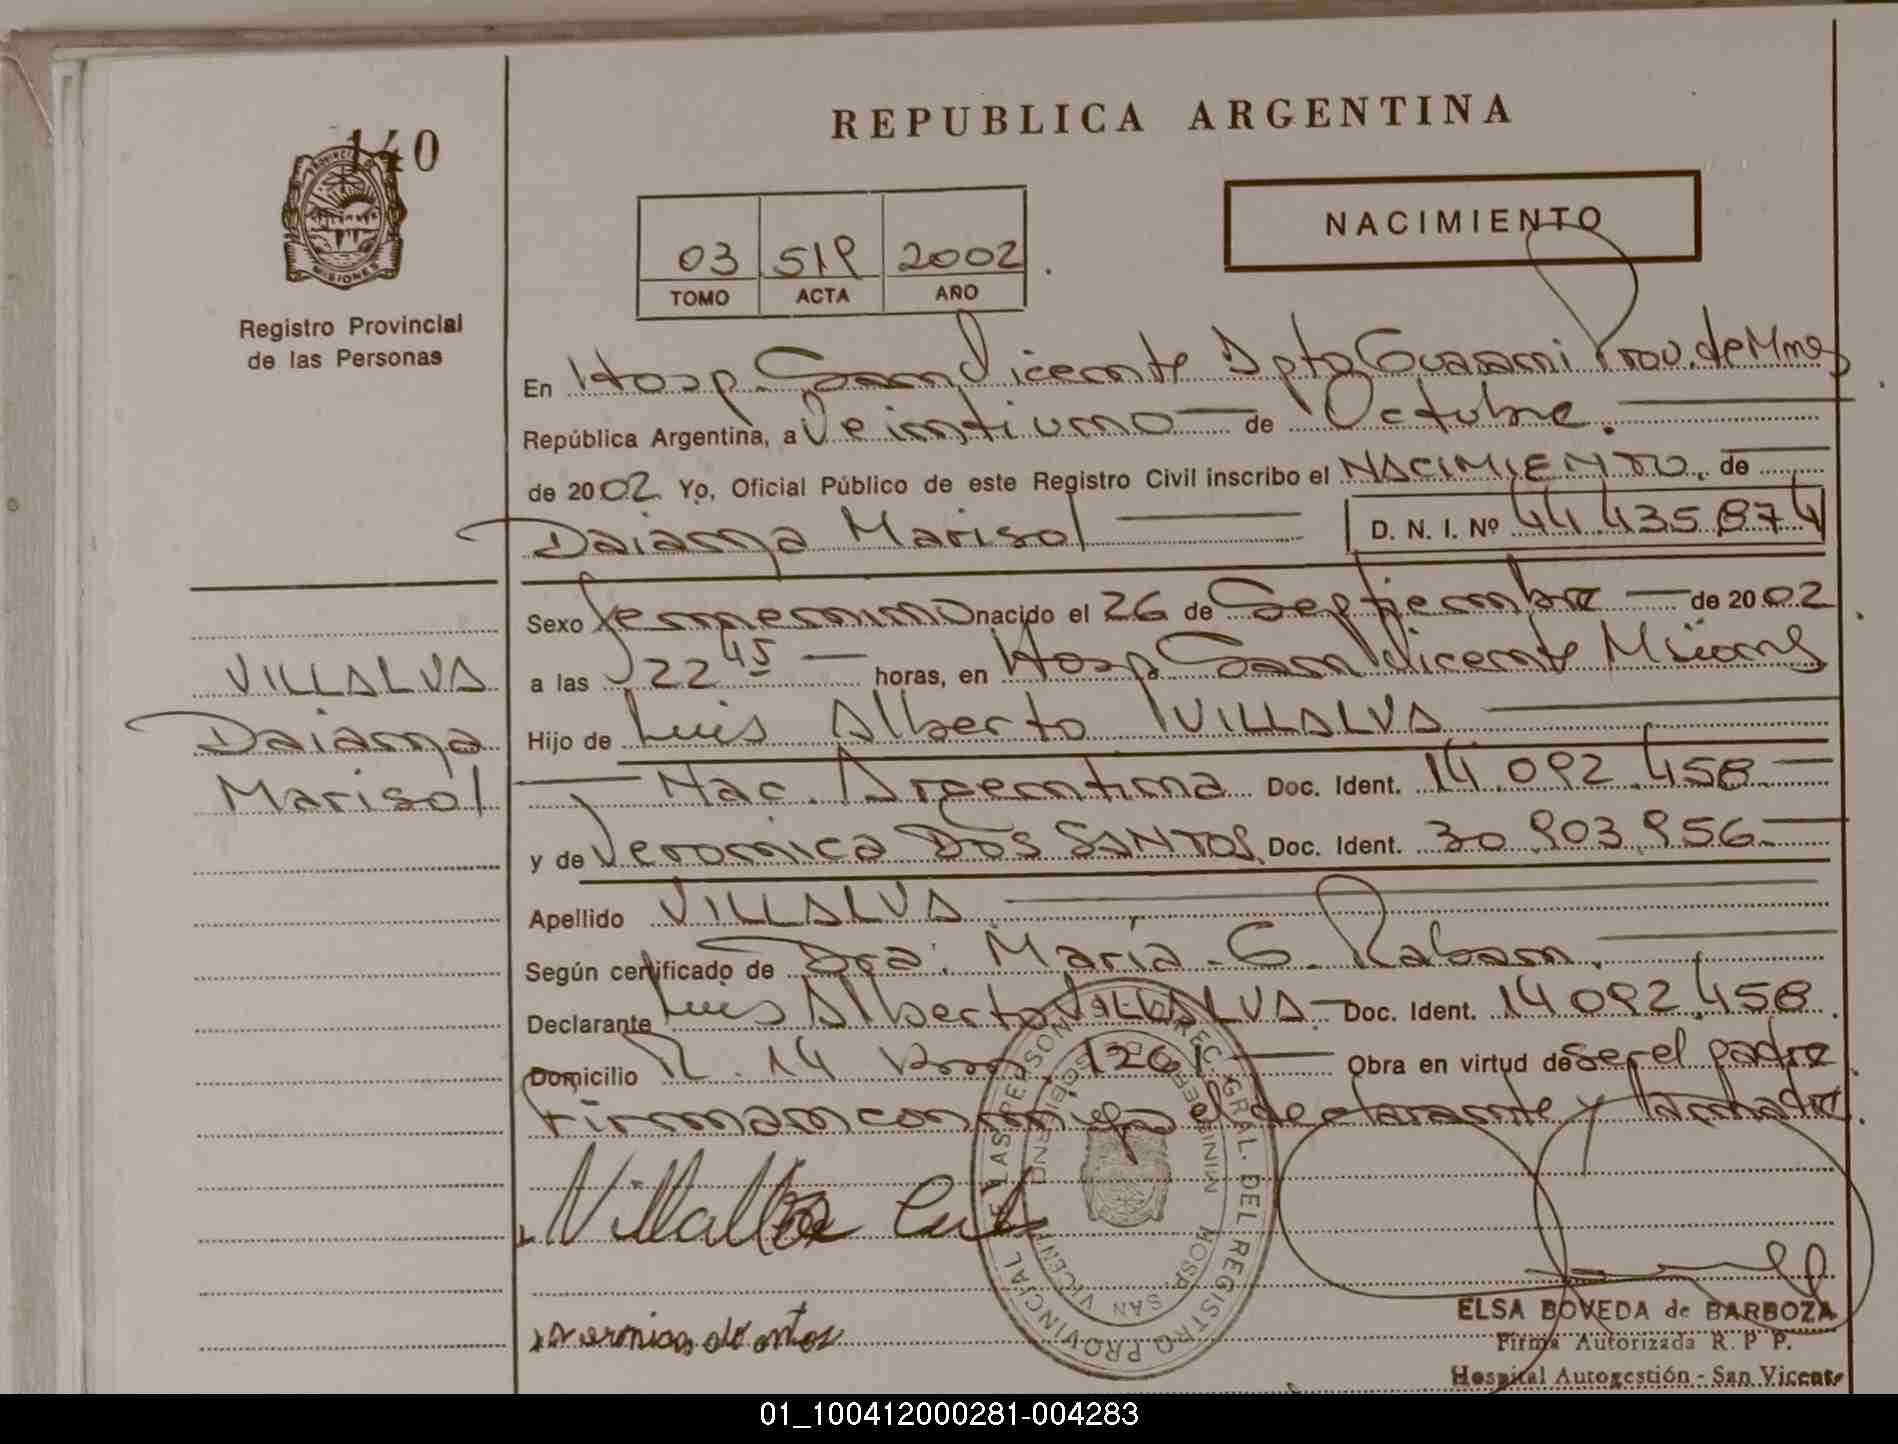 REPUBLICA ARGENTINA
140
PROVINCIA DE
MISIONES
Registro Provincial
de las Personas
03 519 2002
TOMO ACTA AÑO
NACIMIENTO
En Hosp. San Vicente Dpto Guarani Prov. de Mnes
República Argentina, a Veintiuno de Octubre.
de 2002 Yo, Oficial Público de este Registro Civil inscribo el NACIMIENTO. de
Daiana Marisol D. N. I. Nº 44 435 874
Sexo femenino nacido el 26 de Septiembre de 2002
a las 22 45 horas, en Hosp San Vicente Misiones
Hijo de Luis Alberto VILLALVA
Nac. Argentina Doc. Ident. 14.092.458
y de Veronica DOS SANTOS Doc. Ident. 30.903.956
Apellido VILLALVA
Según certificado de Dra. María G. Raban.
Declarante Luis Alberto VILLALVA Doc. Ident. 14 092.458
Domicilio R. 14 Km 1261 Obra en virtud de ser el padre
Firman conmigo el declarante y la madre.
VILLALVA
Daiana
Marisol
Villalba Luis
veronica do santos
REC. GRAL. DEL REGISTRO PROVINCIAL DE LAS PERSONAS
HOSP. SAN VICENTE
ELSA BOVEDA de BARBOZA
Firma Autorizada R. P P.
Hospital Autogestión - San Vicente
01_100412000281-004283